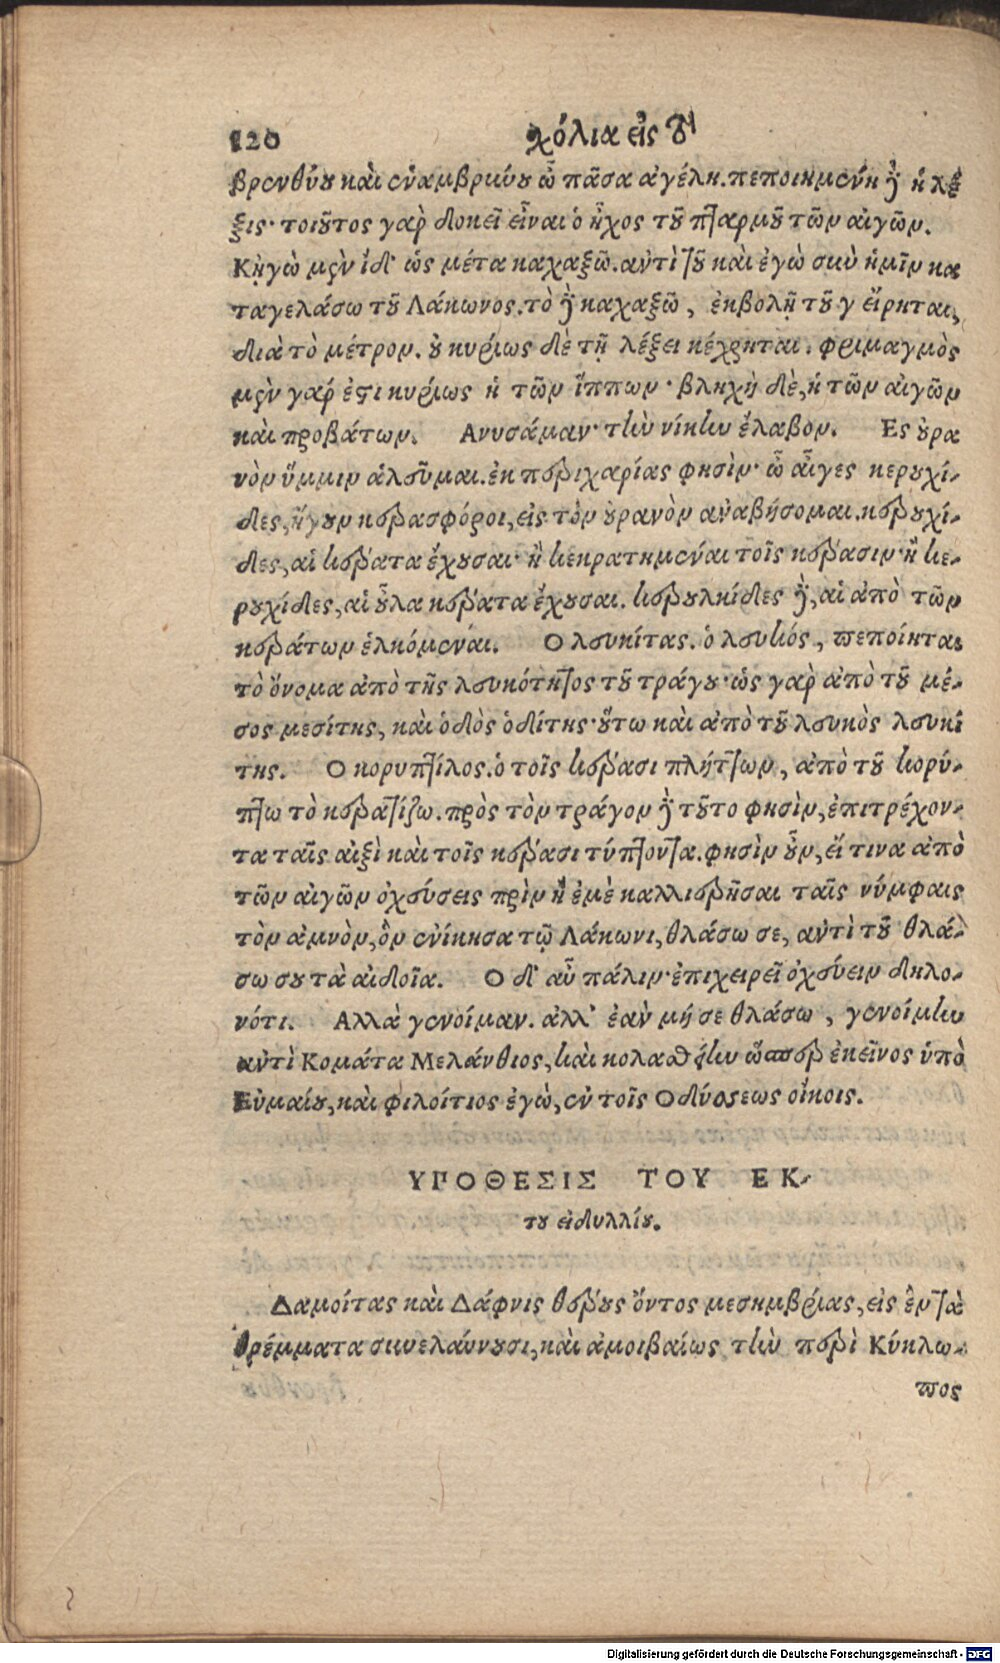 120 χόλια εἰς
βρενθύου καὶ ἐναμβρύου ὦ πᾶσα ἀγέλη. πεποιημένη δὲ ἡ λέ
ξις· τοιοῦτος γὰρ δοκεῖ εἶναι ὁ ἦχος τοῦ πταρμοῦ τῶν αἰγῶν.
Κἠγὼ μὲν ἰδ' ὡς μέτα καχαξῶ. ἀντὶ τοῦ καὶ ἐγὼ σὺν ἡμῖν κα
ταγελάσω τοῦ Λάκωνος. τὸ δὲ καχαξῶ, ἐκβολῇ τοῦ γ εἴρηται,
διὰ τὸ μέτρον. οὐ κυρίως δὲ τῇ λέξει κέχρηται. φριμαγμὸς
μὲν γάρ ἐστι κυρίως ἡ τῶν ἵππων· βληχὴ δὲ, ἡ τῶν αἰγῶν
καὶ προβάτων. Ανυσάμαν· τὴν νίκην ἔλαβον. Ες οὐρα
νὸν ὔμμιν ἁλοῦμαι. ἐκ περιχαρίας φησὶν· ὦ αἶγες κερουχί-
δες, ἤγουν κερασφόροι, εἰς τὸν οὐρανὸν ἀναβήσομαι. κερουχί-
δες, αἱ κέρατα ἔχουσαι· ἢ κεκρατημέναι τοῖς κέρασιν· ἢ κε-
ρουχίδες, αἱ οὖλα κέρατα ἔχουσαι. κερουλκίδες δὲ, αἱ ἀπὸ τῶν
κεράτων ἑλκόμεναι. Ο λευκίτας. ὁ λευκός, πεποίηται
τὸ ὄνομα ἀπὸ τῆς λευκότητος τοῦ τράγου· ὡς γὰρ ἀπὸ τοῦ μέ-
σος μεσίτης, καὶ ὁδὸς ὁδίτης· οὕτω καὶ ἀπὸ τοῦ λευκὸς λευκί
της. Ο κορυπτίλος. ὁ τοῖς κέρασι πλήττων, ἀπὸ τοῦ κορύ-
πτω τὸ κερατίζω. πρὸς τὸν τράγον δὲ τοῦτο φησὶν, ἐπιτρέχον-
τα ταῖς αἰξὶ καὶ τοῖς κέρασι τύπτοντα. φησὶν οὖν, εἴ τινα ἀπὸ
τῶν αἰγῶν ὀχεύσεις πρὶν ἢ ἐμὲ καλλιερῆσαι ταῖς νύμφαις
τὸν ἀμνὸν, ὃν ἐνίκησα τῷ Λάκωνι, θλάσω σε, ἀντὶ τοῦ θλά-
σω σου τὰ αἰδοῖα. Ο δ' αὖ πάλιν· ἐπιχειρεῖ ὀχεύειν δηλο-
νότι. Αλλὰ γενοίμαν. ἀλλ' ἐὰν μή σε θλάσω, γενοίμην
ἀντὶ Κομάτα Μελάνθιος, καὶ κολασθείην ὥσπερ ἐκεῖνος ὑπὸ
Εὐμαίου, καὶ φιλοίτιος ἐγὼ, ἐν τοῖς Οδύσσεως οἴκοις.
ΥΠΟΘΕΣΙΣ ΤΟΥ ΕΚ-
του εἰδυλλίου.
Δαμοίτας καὶ Δάφνις θέρους ὄντος μεσημβρίας, εἰς ἓν τὰ
θρέμματα συνελαύνουσι, καὶ ἀμοιβαίως τὴν περὶ Κύκλω-
πος
Digitalisierung gefördert durch die Deutsche Forschungsgemeinschaft - DFG